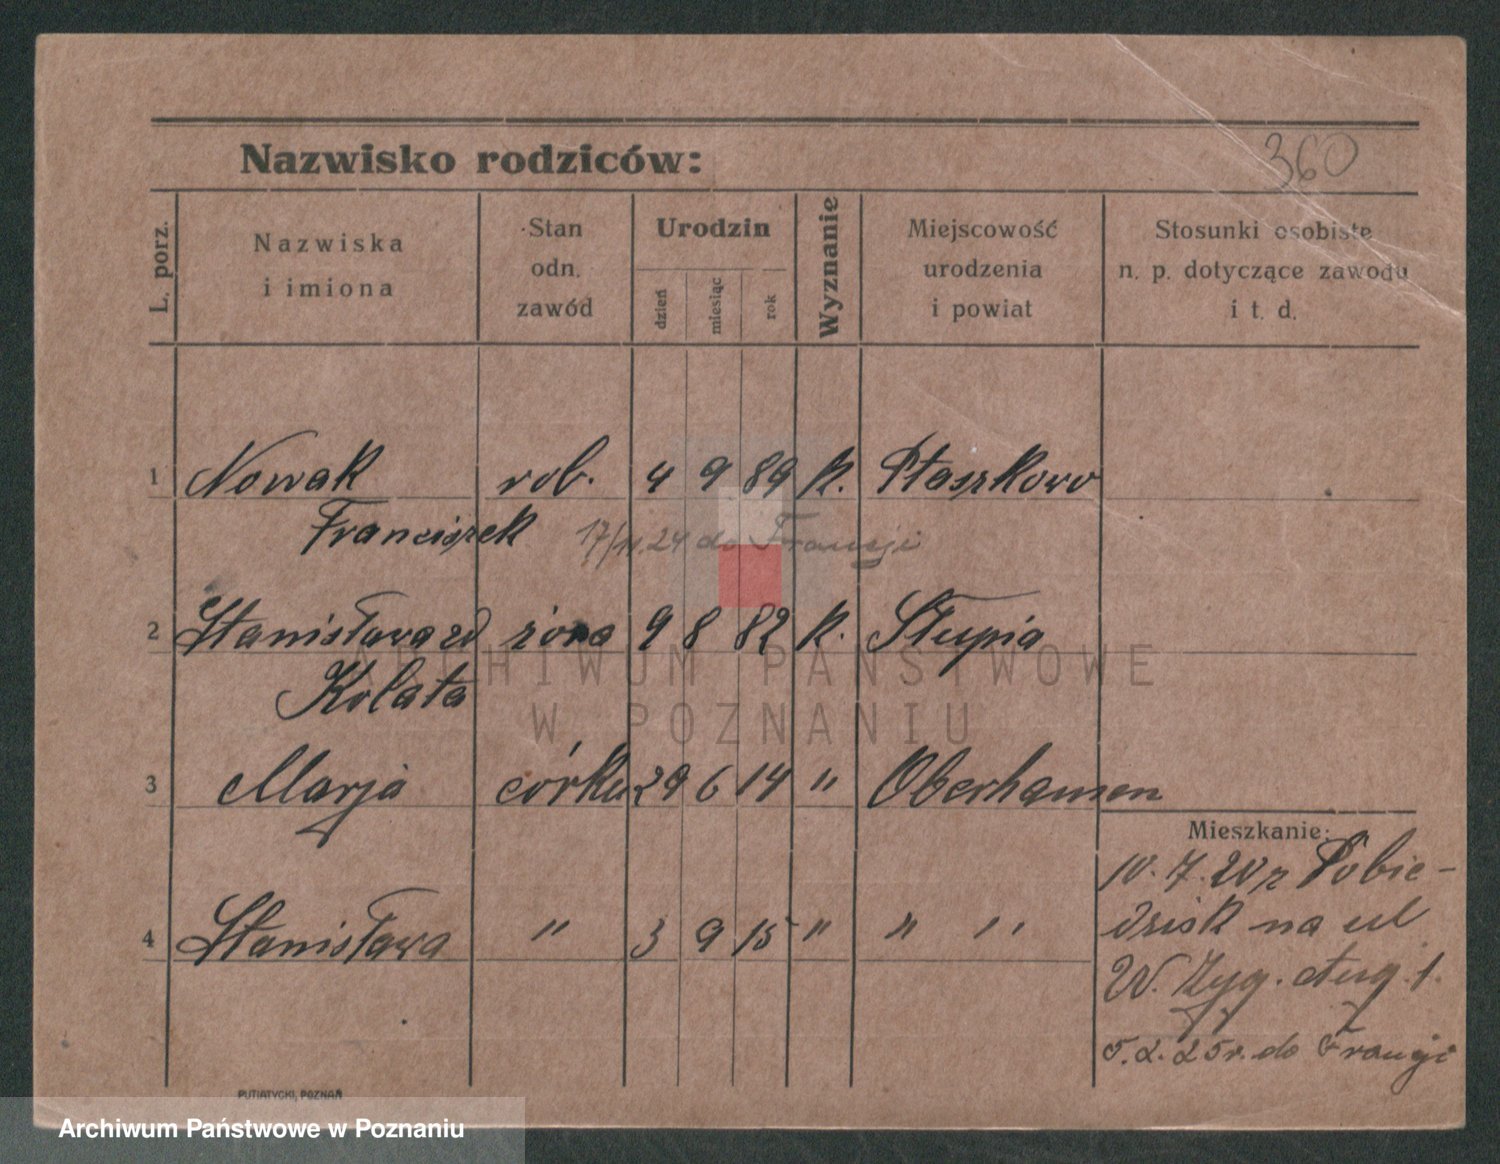 360
Nazwisko rodziców:
L. porz.
Nazwiska
i imiona
Stan
odn.
zawód
Urodzin
dzień
miesiąc
rok
Wyznanie
Miejscowość
urodzenia
i powiat
Stosunki osobiste
n. p. dotyczące zawodu
i t. d.
1 Nowak rob. 4 9 89 k. Ptaszkowo
Franciszek 17/11.24 do Francji
2 Stanisława zd żona 9 8 82 k. Słupia
Kolata
3 Marja córka 29 6 14 " Oberhausen
Mieszkanie:
10. 7. 20 z Pobie-
dzisk na ul
W. Zyg. Aug. 1.
4 Stanisława " 3 9 15 " " "
5. 2. 25 r. do Francji
PUTIATYCKI, POZNAŃ
ARCHIWUM PAŃSTWOWE
W POZNANIU
Archiwum Państwowe w Poznaniu